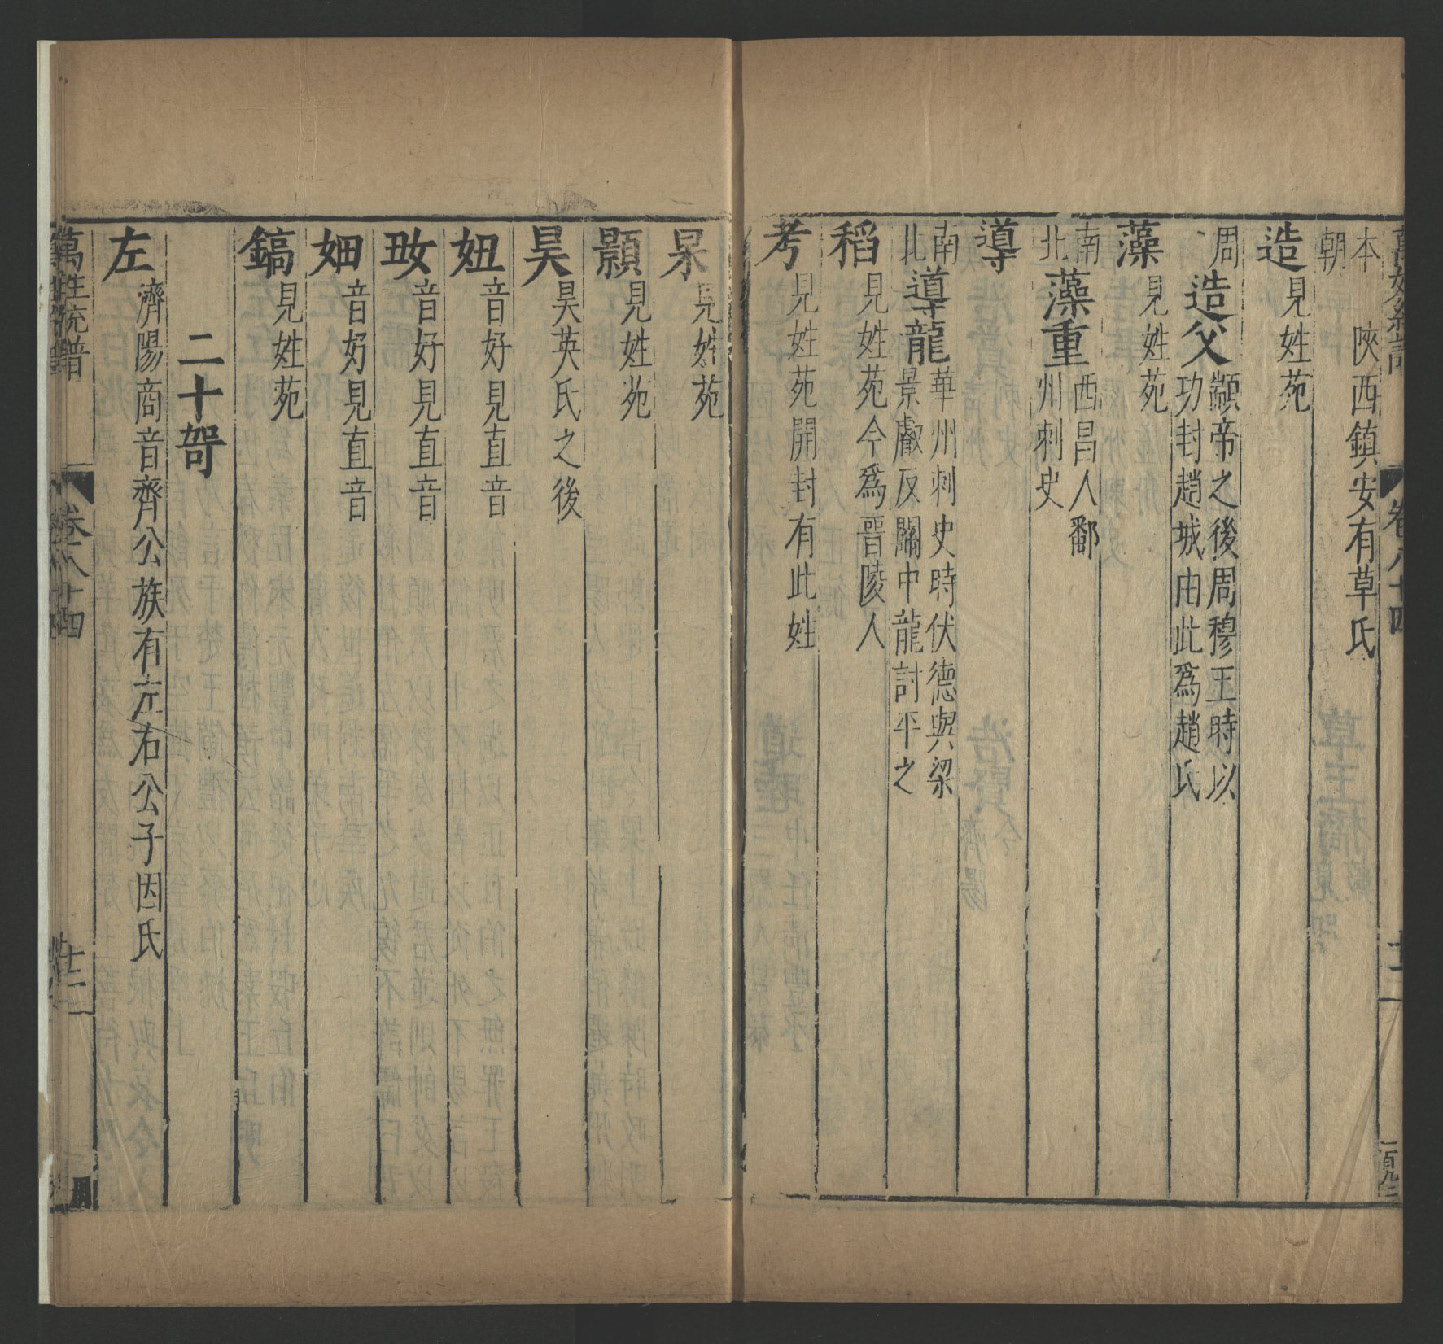 本朝 陝西鎮安有草氏
造 見姓苑
周 造父 顓帝之後周穆王時以
功封趙城由此爲趙氏
藻 見姓苑
南北 藻重 西昌人鄱
州刺史
導
南北 導龍 華州刺史時伏德與梁
景獻反關中龍討平之
稻 見姓苑今爲晉陵人
考 見姓苑開封有此姓
杲 見姓苑
顥 見姓苑
昊 昊英氏之後
妞 音好見直音
𡚽 音好見直音
㚼 音好見直音
鎬 見姓苑
二十哿
左 濟陽商音齊公族有左右公子因氏
萬姓統譜 卷八十四 廿二